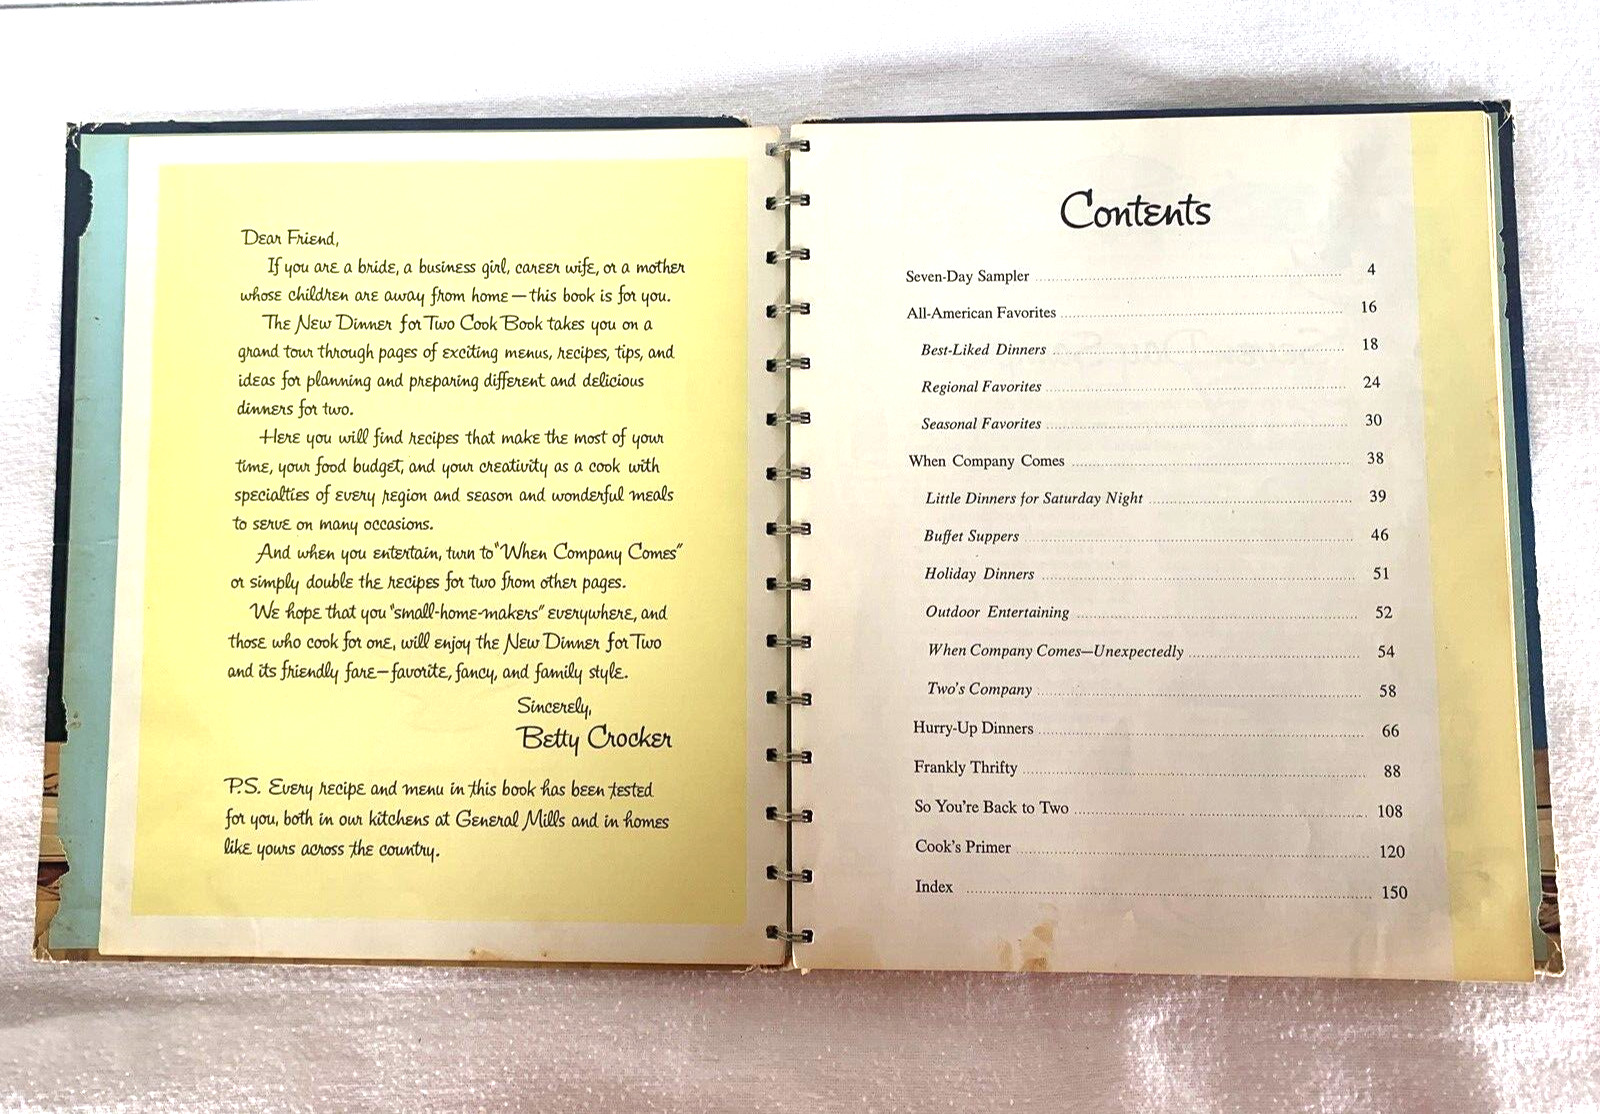 Dear Friend,
If you are a bride, a business girl, career wife, or a mother
whose children are away from home — this book is for you.
The New Dinner for Two Cook Book takes you on a
grand tour through pages of exciting menus, recipes, tips, and
ideas for planning and preparing different and delicious
dinners for two.
Here you will find recipes that make the most of your
time, your food budget, and your creativity as a cook with
specialties of every region and season and wonderful meals
to serve on many occasions.
And when you entertain, turn to "When Company Comes"
or simply double the recipes for two from other pages.
We hope that you "small-home-makers" everywhere, and
those who cook for one, will enjoy the New Dinner for Two
and its friendly fare — favorite, fancy, and family style.
Sincerely,
Betty Crocker
P.S. Every recipe and menu in this book has been tested
for you, both in our kitchens at General Mills and in homes
like yours across the country.
Contents
Seven-Day Sampler 4
All-American Favorites 16
Best-Liked Dinners 18
Regional Favorites 24
Seasonal Favorites 30
When Company Comes 38
Little Dinners for Saturday Night 39
Buffet Suppers 46
Holiday Dinners 51
Outdoor Entertaining 52
When Company Comes—Unexpectedly 54
Two's Company 58
Hurry-Up Dinners 66
Frankly Thrifty 88
So You're Back to Two 108
Cook's Primer 120
Index 150